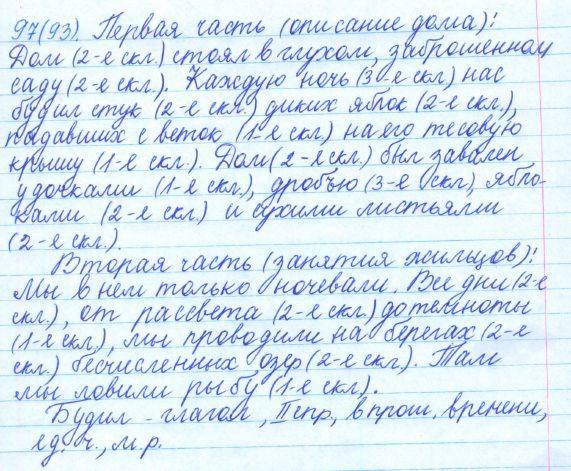 97(93). Первая часть (описание дома):
Дом (2-е скл.) стоял в глухом, заброшенном
саду (2-е скл.). Каждую ночь (3-е скл) нас
будил стук (2-е скл.) диких яблок (2-е скл.),
падавших с веток (1-е скл) на его тесовую
крышу (1-е скл.). Дом (2-е скл.) был завален
удочками (1-е скл), дробью (3-е скл), ябло-
ками (2-е скл) и сухими листьями
(2-е скл.).
Вторая часть (занятия жильцов):
Мы в нем только ночевали. Все дни (2-е
скл), от рассвета (2-е скл) до темноты
(1-е скл), мы проводили на берегах (2-е
скл.) бесчисленных озер (2-е скл). Там
мы ловили рыбу (1-е скл).
Будил - глагол, II спр, в прош. времени,
ед. ч., м.р.